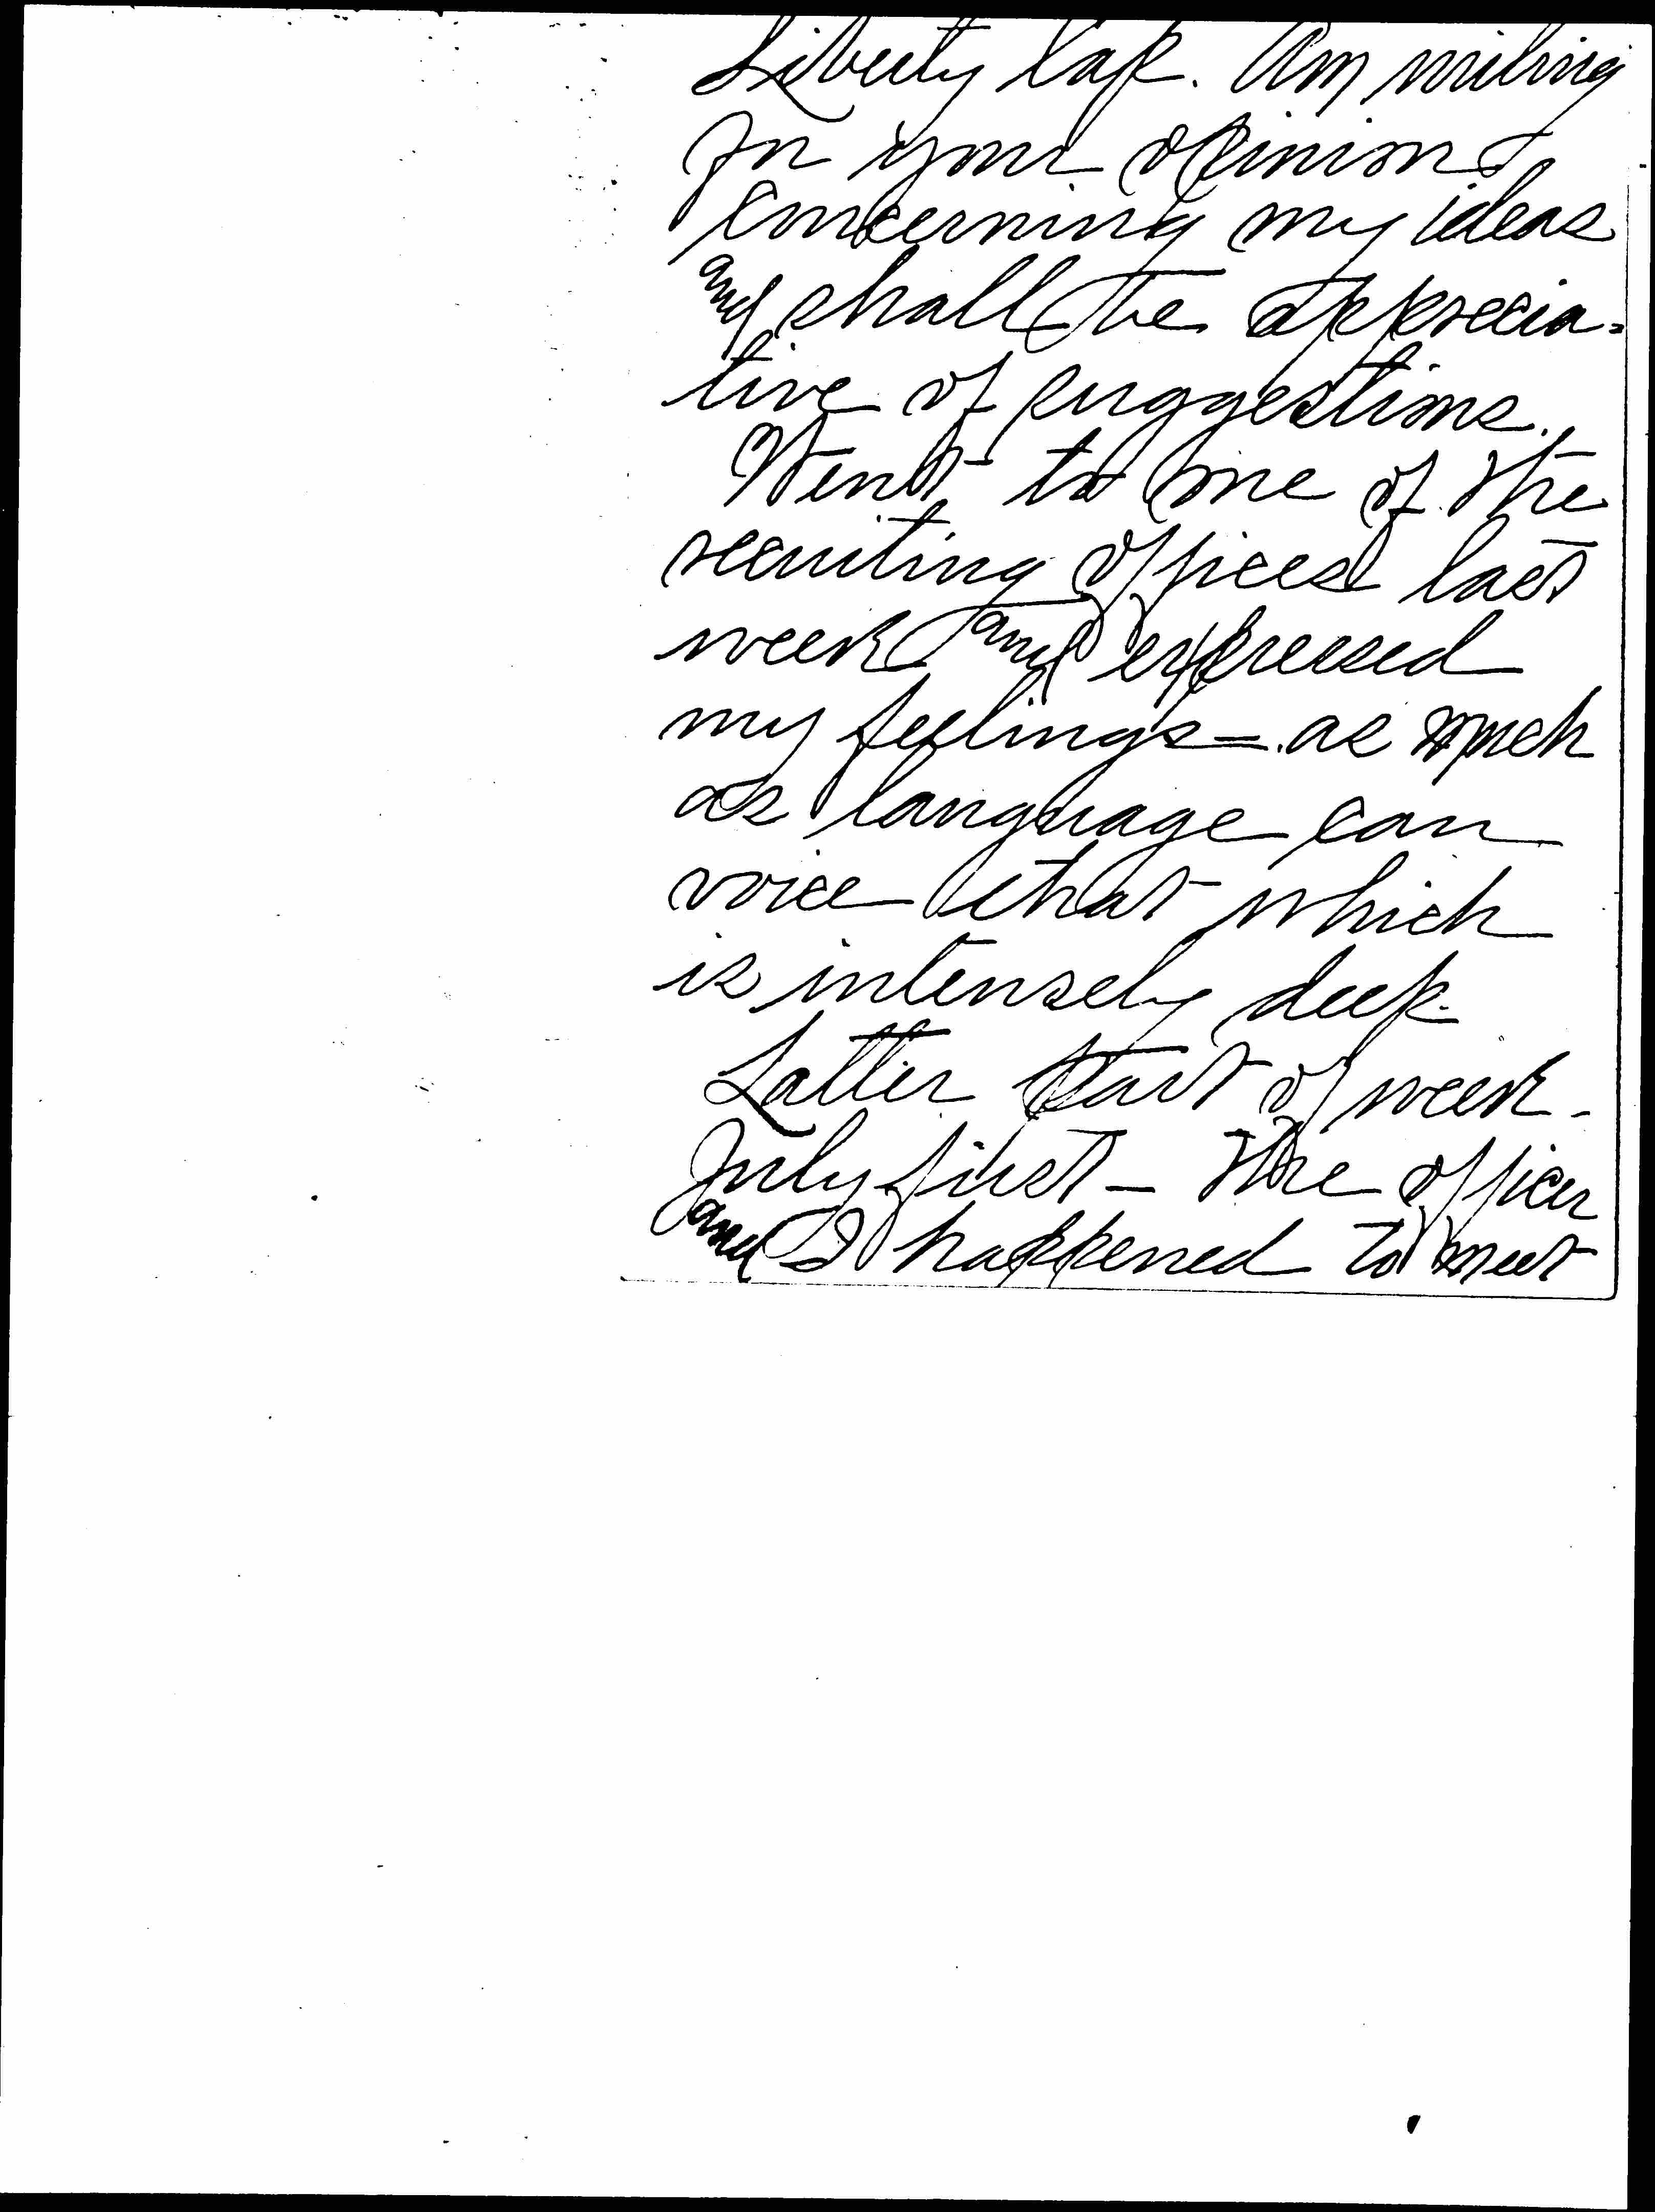 Liberty Cap. Am writing
for your opinion
concerning my ideas
and shall be apprecia-
tive of suggestions.
Went to one of the
recruiting offices last
week and expressed
my feelings - as much
as language can
voice that which
is intensely deep.
Latter part of week -
July first - the officer
and I happened to meet